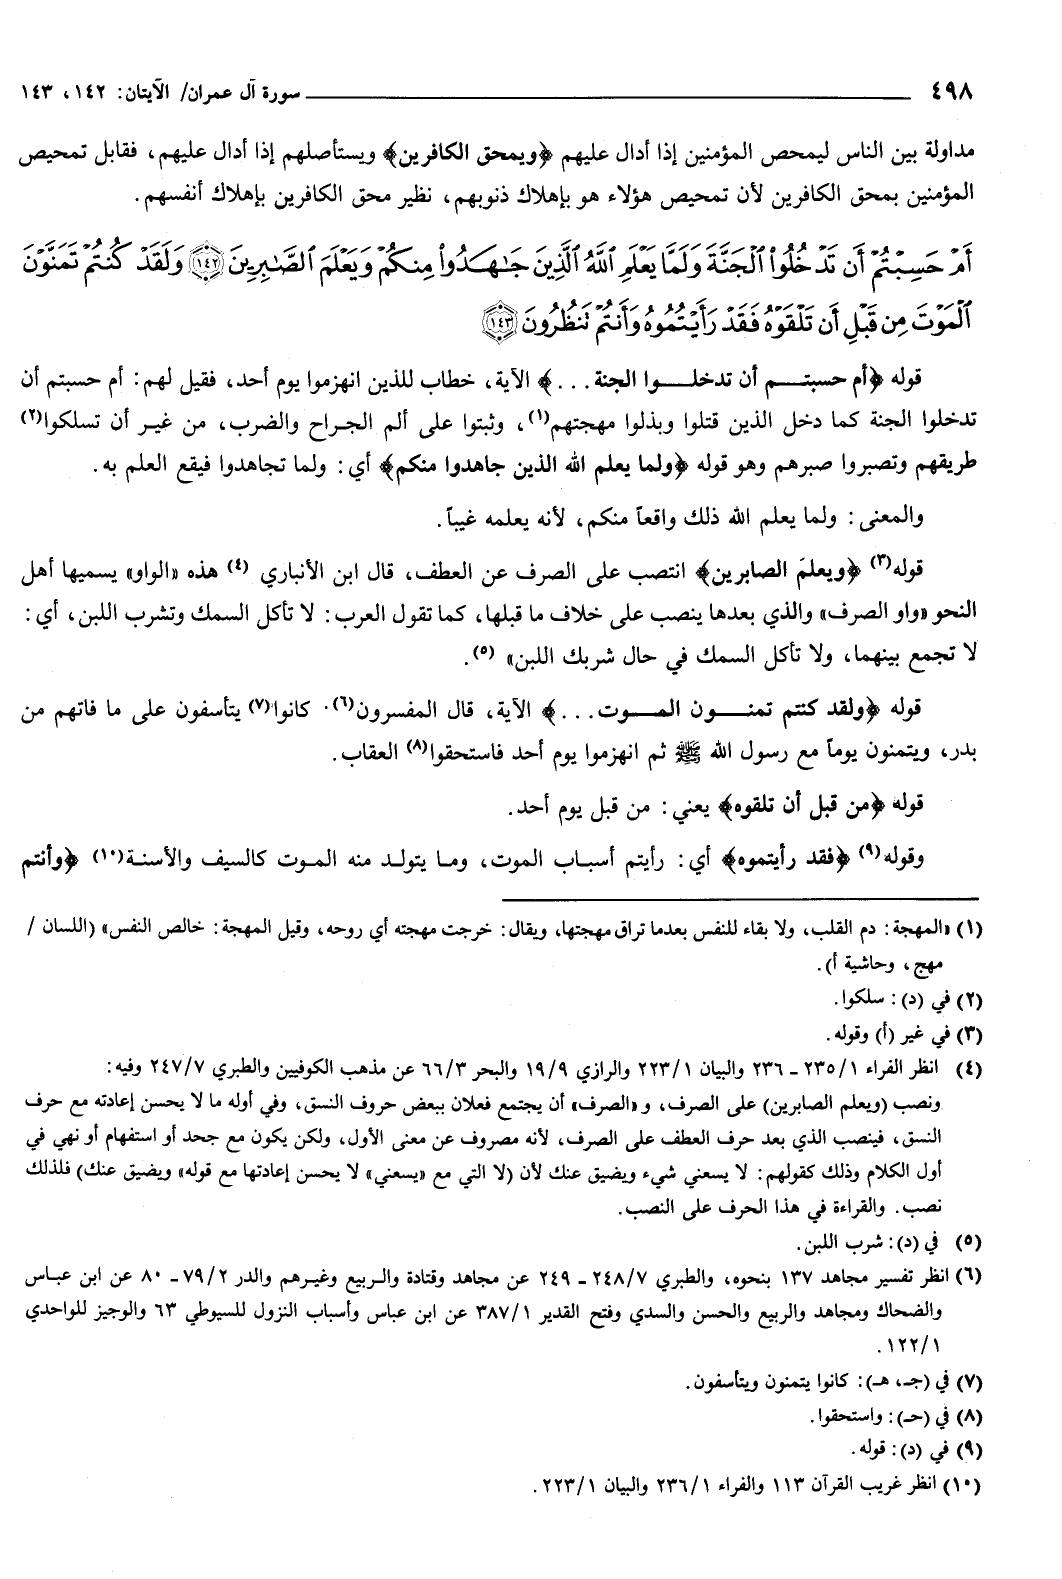 ٤٩٨ سورة آل عمران/ الآيتان: ١٤٢، ١٤٣
مداولة بين الناس ليمحص المؤمنين إذا أدال عليهم ﴿ويمحق الكافرين﴾ ويستأصلهم إذا أدال عليهم، فقابل تمحيص
المؤمنين بمحق الكافرين لأن تمحيص هؤلاء هو بإهلاك ذنوبهم، نظير محق الكافرين بإهلاك أنفسهم.
أَمْ حَسِبْتُمْ أَن تَدْخُلُواْ ٱلْجَنَّةَ وَلَمَّا يَعْلَمِ ٱللَّهُ ٱلَّذِينَ جَـٰهَدُواْ مِنكُمْ وَيَعْلَمَ ٱلصَّـٰبِرِينَ ﴿١٤٢﴾ وَلَقَدْ كُنتُمْ تَمَنَّوْنَ
ٱلْمَوْتَ مِن قَبْلِ أَن تَلْقَوْهُ فَقَدْ رَأَيْتُمُوهُ وَأَنتُمْ نَنظُرُونَ ﴿١٤٣﴾
قوله ﴿أم حسبتــم أن تدخلــوا الجنة . . .﴾ الآية، خطاب للذين انهزموا يوم أحد، فقيل لهم: أم حسبتم أن
تدخلوا الجنة كما دخل الذين قتلوا وبذلوا مهجتهم(١)، وثبتوا على ألم الجراح والضرب، من غير أن تسلكوا(٢)
طريقهم وتصبروا صبرهم وهو قوله ﴿ولما يعلم الله الذين جاهدوا منكم﴾ أي: ولما تجاهدوا فيقع العلم به.
والمعنى: ولما يعلم الله ذلك واقعاً منكم، لأنه يعلمه غيباً.
قوله(٣) ﴿ويعلمَ الصابرين﴾ انتصب على الصرف عن العطف، قال ابن الأنباري (٤) هذه «الواو» يسميها أهل
النحو «واو الصرف» والذي بعدها ينصب على خلاف ما قبلها، كما تقول العرب: لا تأكل السمك وتشرب اللبن، أي:
لا تجمع بينهما، ولا تأكل السمك في حال شربك اللبن» (٥).
قوله ﴿ولقد كنتم تمنــون المــوت . . .﴾ الآية، قال المفسرون(٦). كانوا(٧) يتأسفون على ما فاتهم من
بدر، ويتمنون يوماً مع رسول الله ﷺ ثم انهزموا يوم أحد فاستحقوا(٨) العقاب.
قوله ﴿من قبل أن تلقوه﴾ يعني: من قبل يوم أحد.
وقوله(٩) ﴿فقد رأيتموه﴾ أي: رأيتم أسباب الموت، وما يتولد منه الموت كالسيف والأسنة(١٠) ﴿وأنتم
(١) «المهجة: دم القلب، ولا بقاء للنفس بعدما تراق مهجتها، ويقال: خرجت مهجته أي روحه، وقيل المهجة: خالص النفس» (اللسان /
مهج، وحاشية أ).
(٢) في (د): سلكوا.
(٣) في غير (أ) وقوله.
(٤) انظر الفراء ٢٣٥/١ ـ ٢٣٦ والبيان ٢٢٣/١ والرازي ١٩/٩ والبحر ٦٦/٣ عن مذهب الكوفيين والطبري ٢٤٧/٧ وفيه:
ونصب (ويعلم الصابرين) على الصرف، و«الصرف» أن يجتمع فعلان ببعض حروف النسق، وفي أوله ما لا يحسن إعادته مع حرف
النسق، فينصب الذي بعد حرف العطف على الصرف، لأنه مصروف عن معنى الأول، ولكن يكون مع جحد أو استفهام أو نهي في
أول الكلام وذلك كقولهم: لا يسعني شيء ويضيق عنك لأن (لا التي مع «يسعني» لا يحسن إعادتها مع قوله» ويضيق عنك) فلذلك
نصب. والقراءة في هذا الحرف على النصب.
(٥) في (د): شرب اللبن.
(٦) انظر تفسير مجاهد ١٣٧ بنحوه، والطبري ٢٤٨/٧ ـ ٢٤٩ عن مجاهد وقتادة والربيع وغيرهم والدر ٧٩/٢ ـ ٨٠ عن ابن عباس
والضحاك ومجاهد والربيع والحسن والسدي وفتح القدير ٣٨٧/١ عن ابن عباس وأسباب النزول للسيوطي ٦٣ والوجيز للواحدي
١٢٢/١.
(٧) في (جـ، هـ): كانوا يتمنون ويتأسفون.
(٨) في (حـ): واستحقوا.
(٩) في (د): قوله.
(١٠) انظر غريب القرآن ١١٣ والفراء ٢٣٦/١ والبيان ٢٢٣/١.